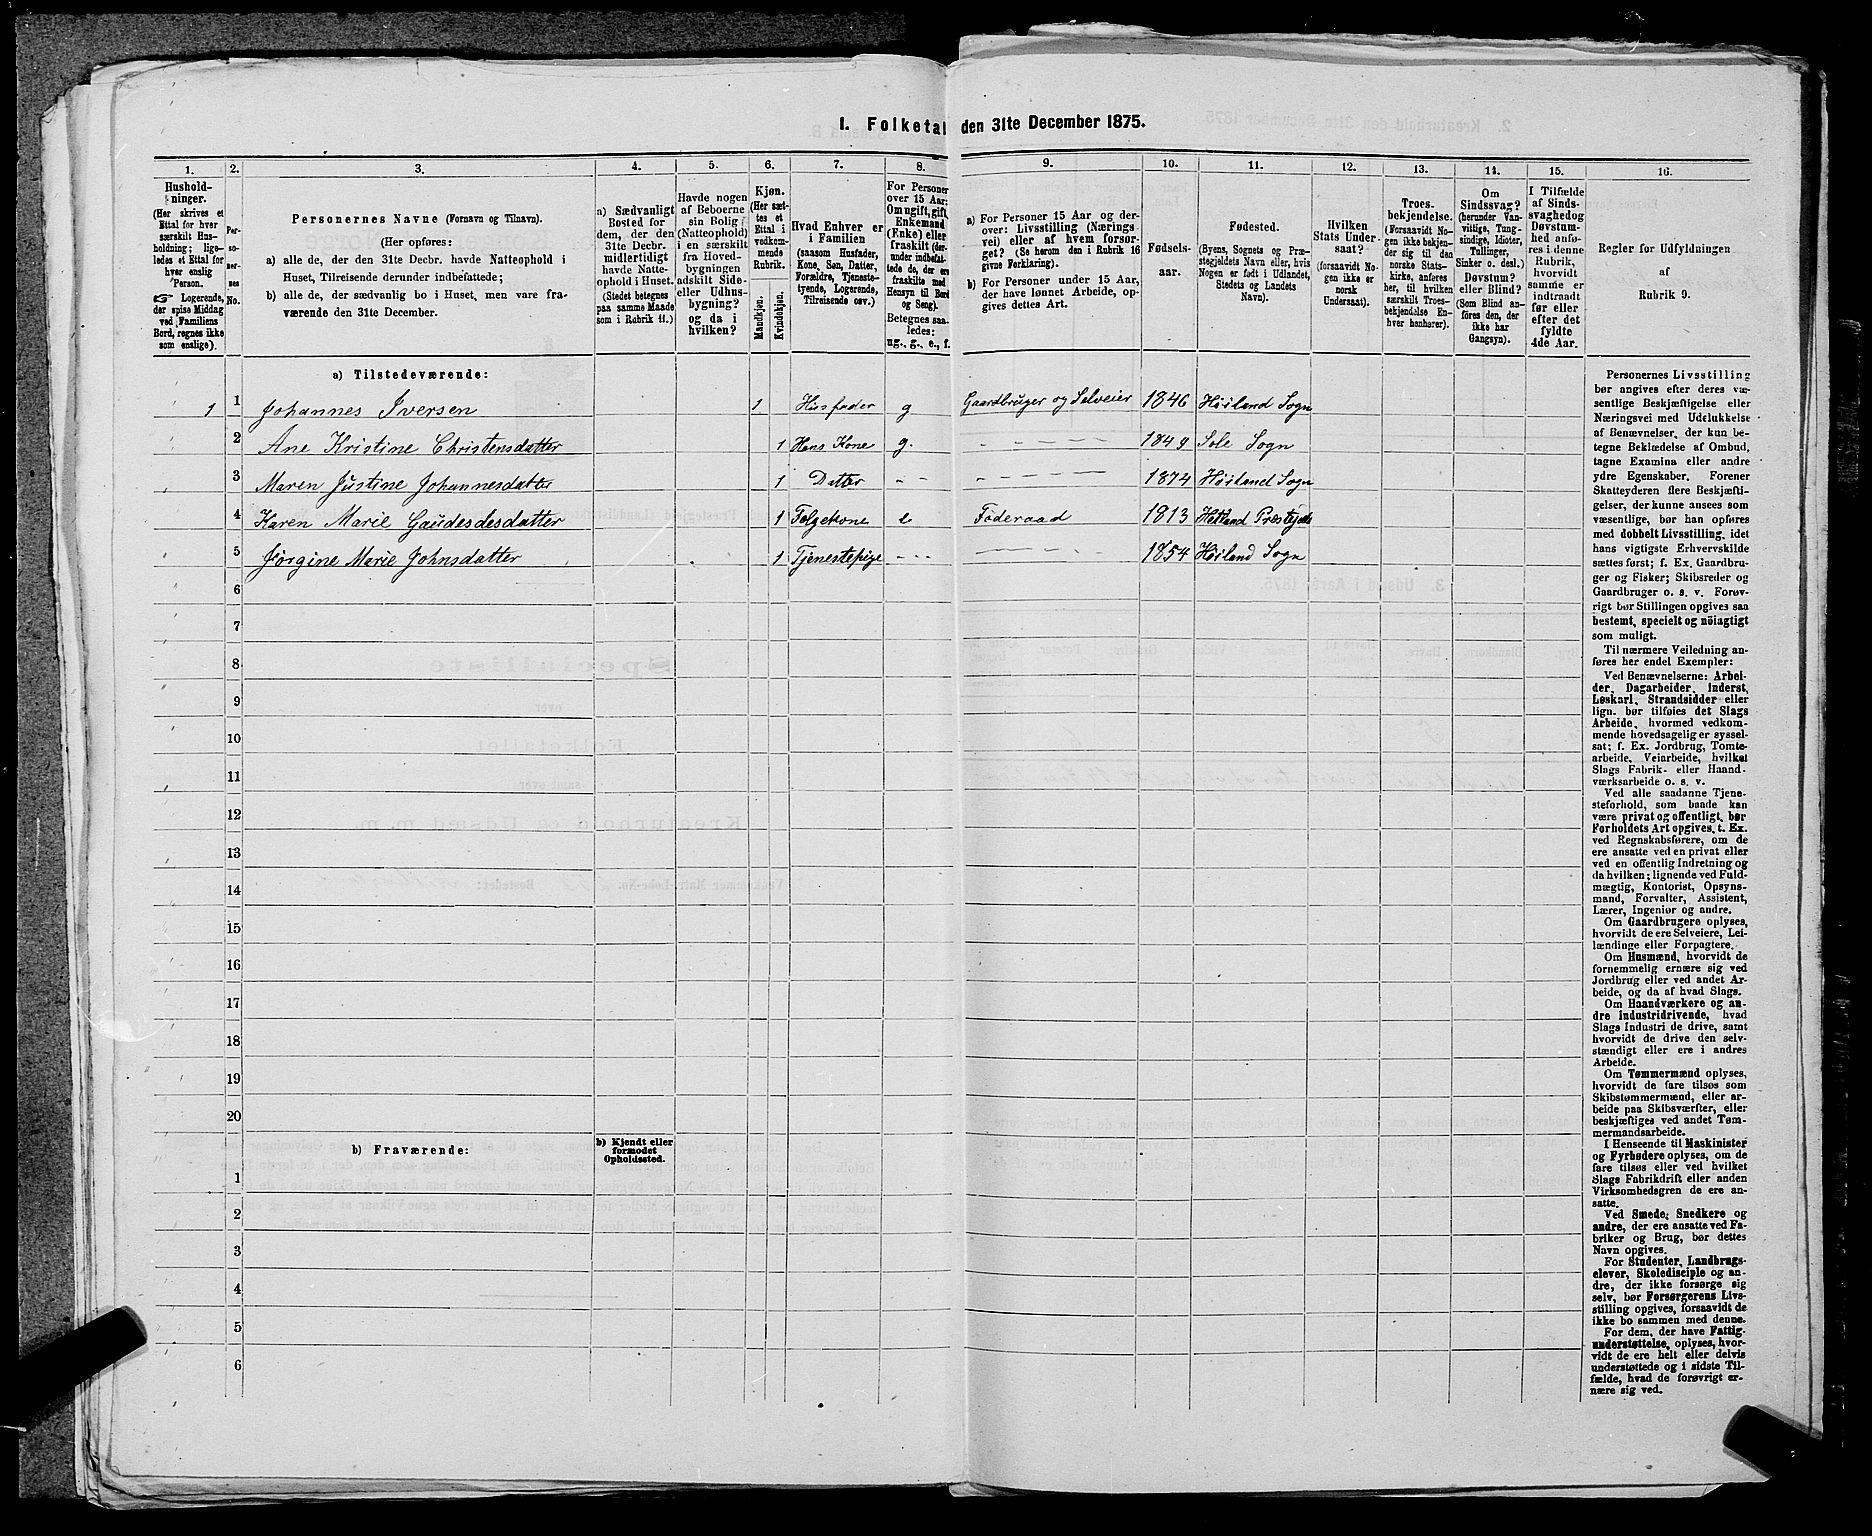 1. Folketal den 31te December 1875.
1. 2. 3. 4. 5. 6. 7. 8. 9. 10. 11. 12. 13. 14. 15. 16.
Hushold-
ninger.
(Her skrives et
Ettal for hver
særskilt Hus-
holdning; lige-
ledes et Ettal for
hver enslig
Person.
☞ Logerende,
der spise Middag
ved Familiens
Bord, regnes ikke
som enslige).
Per-
so-
ner-
nes
No.
Personernes Navne (Fornavn og Tilnavn).
(Her opføres:
a) alle de, der den 31te Decbr. havde Natteophold i
Huset, Tilreisende derunder indbefattede;
b) alle de, der sædvanlig bo i Huset, men vare fra-
værende den 31te December.
a) Sædvanligt
Bosted for
dem, der den
31te Decbr.
midlertidigt
havde Natte-
ophold i Huset.
(Stedet betegnes
paa samme Maade
som i Rubrik 11.)
Havde nogen
af Beboerne
sin Bolig
(Natteophold)
i en særskilt
fra Hoved-
bygningen
adskilt Side-
eller Udhus-
bygning?
og da i
hvilken?
Kjøn.
(Her sæt-
tes et
Ettal i
vedkom-
mende
Rubrik.
Mandkjøn.
Kvindekjøn.
Hvad Enhver er
i Familien
(saasom Husfader,
Kone, Søn, Datter,
Forældre, Tjeneste-
tyende, Logerende,
Tilreisende osv.)
For Personer
over 15 Aar:
Om ugift, gift,
Enkemand
(Enke) eller
fraskilt (der-
under indbefat-
tede de, der ere
fraskilte med
Hensyn til Bord
og Seng).
Betegnes saa-
ledes:
ug., g., e., f.
a) For Personer 15 Aar og der-
over: Livsstilling (Nærings-
vei) eller af hvem forsør-
get? (Se herom den i Rubrik 16
givne Forklaring).
b) For Personer under 15 Aar,
der have lønnet Arbeide, op-
gives dettes Art.
Fødsels-
aar.
Fødested.
(Byens, Sognets og Præ-
stegjeldets Navn eller, hvis
Nogen er født i Udlandet,
Stedets og Landets
Navn).
Hvilken
Stats Under-
saat?
(forsaavidt No-
gen ikke er
norsk
Undersaat).
Troes-
bekjendelse.
(Forsaavidt No-
gen ikke bekjen-
der sig til den
norske Stats-
kirke, anføres
her, til hvilken
særskilt Troes-
bekjendelse En-
hver henhører).
Om
Sindssvag?
(herunder Van-
vittige, Tung-
sindige, Idioter,
Tullinger,
Sinker o. desl.)
Døvstum?
eller Blind?
(Som Blind an-
føres den, der
ikke har
Gangsyn).
I Tilfælde
af Sinds-
svaghed og
Døvstum-
hed anfø-
res i denne
Rubrik,
hvorvidt
samme er
indtraadt
før eller
efter det
fyldte
4de Aar.
Regler for Udfyldningen
af
Rubrik 9.
a) Tilstedeværende:
1 1 Johannes Iversen 1 Husfader g Gaardbruger og Selveier 1846 Höiland Sogn
2 Ane Kristine Christensdatter 1 Hans Kone g. - - - - 1849 Sole Sogn
3 Maren Justine Johannesdatter 1 Datter - - - - - - 1874 Höiland Sogn
4 Karen Marie Gaudesdesdatter 1 Folgekone e Föderaad 1813 Hetland Præstejeld
5 Jörgine Marie Johnsdatter 1 Tjenestepige - - - - - - 1854 Höiland Sogn
6
7
8
9
10
11
12
13
14
15
16
17
18
19
20
b) Fraværende:
b) Kjendt eller
formodet
Opholdssted.
1
2
3
4
5
6
Personernes Livsstilling
bør angives efter deres væ-
sentlige Beskjæftigelse eller
Næringsvei med Udelukkelse
af Benævnelser, der kun be-
tegne Beklædelse af Ombud,
tagne Examina eller andre
ydre Egenskaber. Forener
Skatteyderen flere Beskjæfti-
gelser, der kunne ansees som
væsentlige, bør han opføres
med dobbelt Livsstilling, idet
hans vigtigste Erhvervskilde
sættes først; f. Ex. Gaardbru-
ger og Fisker; Skibsreder og
Gaardbruger o. s. v. Forøv-
rigt bør Stillingen opgives saa
bestemt, specielt og nöiagtigt
som muligt.
Til nærmere Veiledning an-
føres her endel Exempler:
Ved Benævnelserne: Arbei-
der, Dagarbeider, Inderst,
Løskarl, Strandsidder eller
lign. bør tilføies det Slags
Arbeide, hvormed vedkom-
mende hovedsagelig er syssel-
sat; f. Ex. Jordbrug, Tomte-
arbeide, Veiarbeide, hvilket
Slags Fabrik- eller Haand-
værksarbeide o. s. v.
Ved alle saadanne Tjene-
steforhold, som baade kan
være privat og offentligt, bør
Forholdets Art opgives, t. Ex.
ved Regnskabsførere, om de
ere ansatte ved en privat eller
ved en offentlig Indretning og
da hvilken; lignende ved Fuld-
mægtig, Kontorist, Opsyns-
mand, Forvalter, Assistent,
Lærer, Ingeniør og andre.
Om Gaardbrugere oplyses,
hvorvidt de ere Selveiere, Lei-
lændinge eller Forpagtere.
Om Husmænd, hvorvidt de
fornemmelig ernære sig ved
Jordbrug eller ved andet Ar-
beide, og da af hvad Slags.
Om Haandværkere og an-
dre industridrivende, hvad
Slags Industri de drive, samt
hvorvidt de drive den selv-
stændigt eller ere i andres
Arbeide.
Om Tømmermænd oplyses,
hvorvidt de fare tilsøs som
Skibstømmermænd, eller ar-
beide paa Skibsværfter, eller
beskjæftiges ved andet Tøm-
mermandsarbeide.
I Henseende til Maskinister
og Fyrbødere oplyses, om de
fare tilsøs eller ved hvilket
Slags Fabrikdrift eller anden
Virksomhedsgren de ere an-
satte.
Ved Smede, Snedkere og
andre, der ere ansatte ved Fa-
briker og Brug, bør dettes
Navn opgives.
For Studenter, Landbrugs-
elever, Skoledisciple og an-
dre, der ikke forsørge sig
selv, bør Forsørgerens Livs-
stilling opgives, forsaavidt de
ikke bo sammen med denne.
For dem, der have Fattig-
understøttelse, oplyses, hvor-
vidt de ere helt eller delvis
understøttede og i sidste Til-
fælde, hvad de forøvrigt er-
nære sig ved.